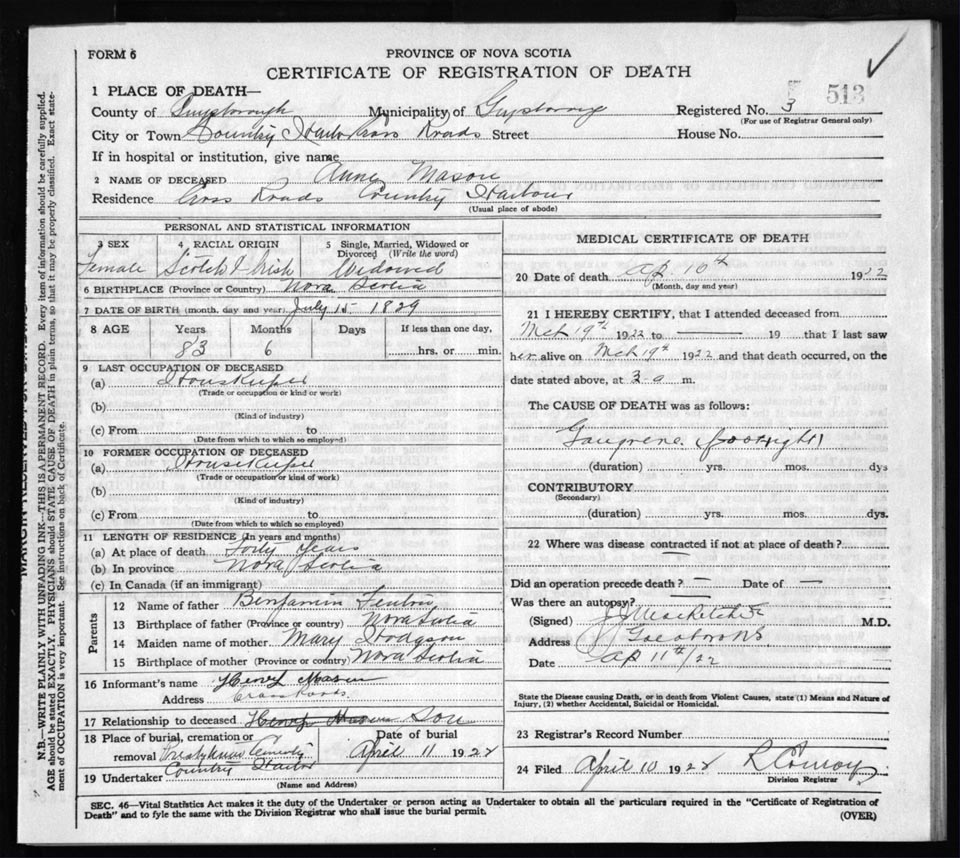 FORM 6
PROVINCE OF NOVA SCOTIA
CERTIFICATE OF REGISTRATION OF DEATH
513
1 PLACE OF DEATH—
County of Guysborough Municipality of Guysboro Registered No. 3
(For use of Registrar General only)
City or Town Country Harbor Cross Roads Street House No.
If in hospital or institution, give name
2 NAME OF DECEASED Anne Mason
Residence Cross Roads Country Harbour
(Usual place of abode)
PERSONAL AND STATISTICAL INFORMATION
3 SEX 4 RACIAL ORIGIN 5 Single, Married, Widowed or Divorced (Write the word)
Female Scotch & Irish Widowed
6 BIRTHPLACE (Province or Country) Nova Scotia
7 DATE OF BIRTH (month, day and year) July 15 1829
8 AGE Years Months Days If less than one day,
83 6 hrs. or min.
9 LAST OCCUPATION OF DECEASED
(a) Housekeeper
(Trade or occupation or kind or work)
(b)
(Kind of industry)
(c) From to
(Date from which to which so employed)
10 FORMER OCCUPATION OF DECEASED
(a) Housekeeper
(Trade or occupation or kind of work)
(b)
(Kind of industry)
(c) From to
(Date from which to which so employed)
11 LENGTH OF RESIDENCE (In years and months)
(a) At place of death Forty Years
(b) In province Nova Scotia
(c) In Canada (if an immigrant)
Parents
12 Name of father Benjamin Fenton
13 Birthplace of father (Province or country) Nova Scotia
14 Maiden name of mother Mary Hodgson
15 Birthplace of mother (Province or country) Nova Scotia
16 Informant's name Henry Mason
Address Cross Roads
17 Relationship to deceased Henry Mason Son
18 Place of burial, cremation or removal Presbyterian Cemetery Date of burial April 11 1922
Country Harbor
19 Undertaker
(Name and Address)
MEDICAL CERTIFICATE OF DEATH
20 Date of death Ap. 10th 1922
(Month, day and year)
21 I HEREBY CERTIFY, that I attended deceased from
Mch 19th 1922 to — 19 that I last saw
her alive on Mch 19th 1922 and that death occurred, on the
date stated above, at 3 a m.
The CAUSE OF DEATH was as follows:
Gangrene (foot right)
(duration) yrs. mos. dys
CONTRIBUTORY
(Secondary)
(duration) yrs. mos. dys.
22 Where was disease contracted if not at place of death?
—
Did an operation precede death? — Date of —
Was there an autopsy?
(Signed) M.D.
Address
Date Ap 11th/22
State the Disease causing Death, or in death from Violent Causes, state (1) Means and Nature of
Injury, (2) whether Accidental, Suicidal or Homicidal.
23 Registrar's Record Number
24 Filed April 10 1922 R Conroy
Division Registrar
SEC. 46—Vital Statistics Act makes it the duty of the Undertaker or person acting as Undertaker to obtain all the particulars required in the "Certificate of Registration of
Death" and to fyle the same with the Division Registrar who shall issue the burial permit.
(OVER)
N.B.—WRITE PLAINLY WITH UNFADING INK—THIS IS A PERMANENT RECORD. Every item of information should be carefully supplied.
AGE should be stated EXACTLY. PHYSICIANS should STATE CAUSE OF DEATH in plain terms, so that it may be properly classified. Exact state-
ment of OCCUPATION is very important. See instructions on back of Certificate.